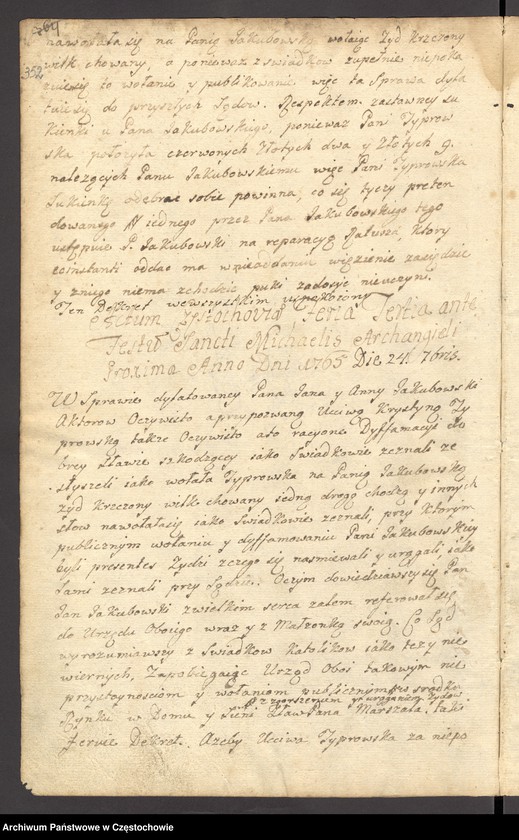 364
352
nawołała się na Panią Jakubowską wołaiąc Żyd krzczony
wilk chowany, a ponieważ z świadkow zupełnie niepoka
zuie się to wołanie y publikowanie więc ta Sprawa dyla
tuie się do przyszłych Sądow. Respektem zastawney su
kienki u Pana Jakubowskiego, ponieważ Pani Typrow
ska położyła czerwonych Złotych dwa y Złotych 9.
należących Panu Jakubowskiemu więc Pani Typrowska
Sukienkę odebrać sobie powinna, co się tyczy preten
dowanego N iednego przez Pana Jakubowskiego tego
ustępuie P. Jakubowski na reparacyą Ratusza, ktory
coinstanti oddać ma w nieoddaniu więzienie zasiędzie
y z niego niema zchodzić puki zadosyć nieuczyni.
Ten Dekret wewszystkim
Actum Czstochovia Feria Tertia ante
Festũ Sancti Michaelis Archangieli
Proxima Anno Dni 1765 Die 24. 7bris.
W Sprawie dylatowaney Pana Jana y Anny Jakubowski
Aktorow Oczywisto a przypozwaną Ucciwą Krystyną Ty
prowską także Oczywisto a to racyone Dyffamacyi do
brey sławie szkodzącey iako Swiadkowie zeznali ze
słyszeli iako wołała Typrowska na Panią Jakubowską
żyd krzczony wilk chowany iedną drogą chodzą y innych
słow nawołała się iako Swiadkowie zeznali, przy ktorym
publicznym wołaniu y dyffamowaniu Pani Jakubowskiey
byli presentes Żydzi z czego się nasmiewali y urągali, iako
sami zeznali przy Sądzie. Oczym dowiedziawszy się Pan
Jan Jakubowski z wielkim serca żalem referował się
do Urzędu Oboiego wraz y z Małżonką swoią. Co Sąd
wyrozumiawszy z Swiadkow Katolikow iako też y nie
wiernych, Zapobiegaiąc Urząd Oboi takowym nie
przystoynosciom y wołaniom publicznym w srodku
z zgorszeniem y urąganiem Żydow
Rynku w Domu y Sieni Sław Pana Marszała. Taki
Feruie Dekret. Ażeby Ucciwa Typrowska za niepo
Archiwum Państwowe w Częstochowie